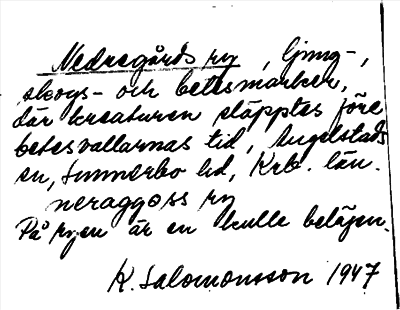 Nedregårds ry, ljung-,
skogs- och betesmarker,
där kreaturen släpptes före
betesvallarnas tid, Angelstads
sn, Sunnerbo hd, Krb. län.
neraggoss ry
På ryen är en kulle belägen.
K. Salomonsson 1947